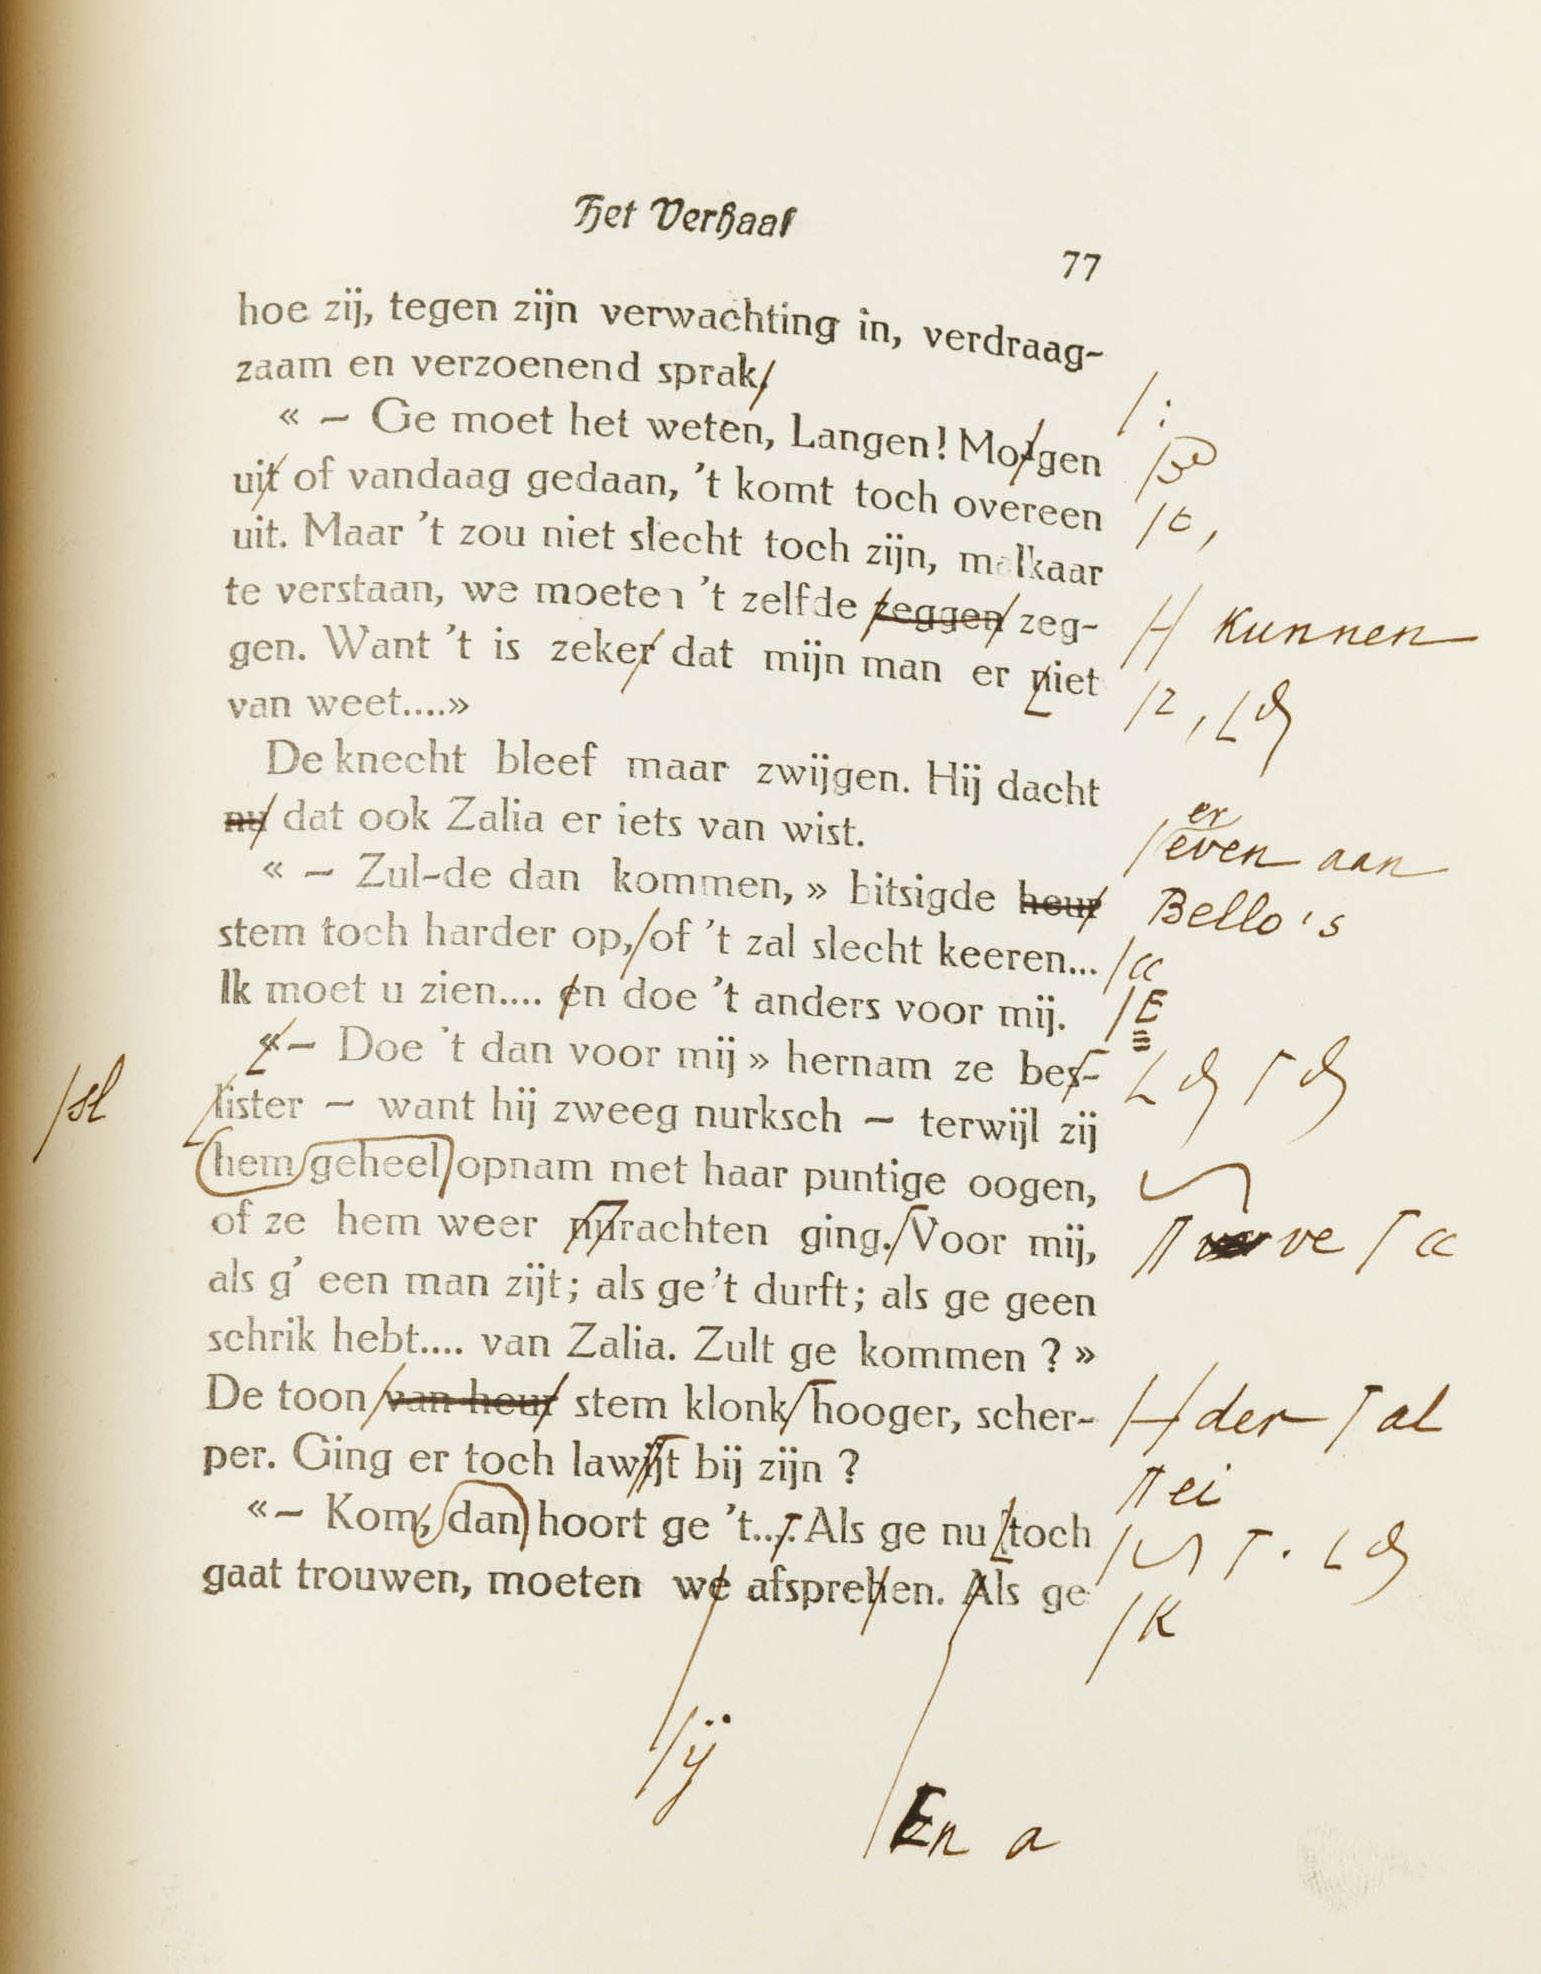 Het Verhaal
77
hoe zij, tegen zijn verwachting in, verdraag-
zaam en verzoenend sprak,
/:
« — Ge moet het weten, Langen! Morgen
uit of vandaag gedaan, 't komt toch overeen
uit. Maar 't zou niet slecht toch zijn, malkaar
te verstaan, we moeten 't zelfde zeggen zeg-
H kunnen
gen. Want 't is zeker dat mijn man er niet
van weet....»
De knecht bleef maar zwijgen. Hij dacht
nu dat ook Zalia er iets van wist.
er
/even aan
« — Zul-de dan kommen, » bitsigde heur
Bello's
stem toch harder op, of 't zal slecht keeren...
/«
Ik moet u zien.... en doe 't anders voor mij.
/E
« — Doe 't dan voor mij » hernam ze bes-
/sl
lister — want hij zweeg nurksch — terwijl zij
hem geheel opnam met haar puntige oogen,
of ze hem weer nurachten ging. Voor mij,
ve «
als g' een man zijt; als ge 't durft; als ge geen
schrik hebt.... van Zalia. Zult ge kommen ? »
De toon van heur stem klonk hooger, scher-
H der al
per. Ging er toch lawijt bij zijn ?
ei
« — Kom, dan hoort ge 't.... Als ge nu toch
gaat trouwen, moeten we afsprehen. Als ge
/K
/ij
En a